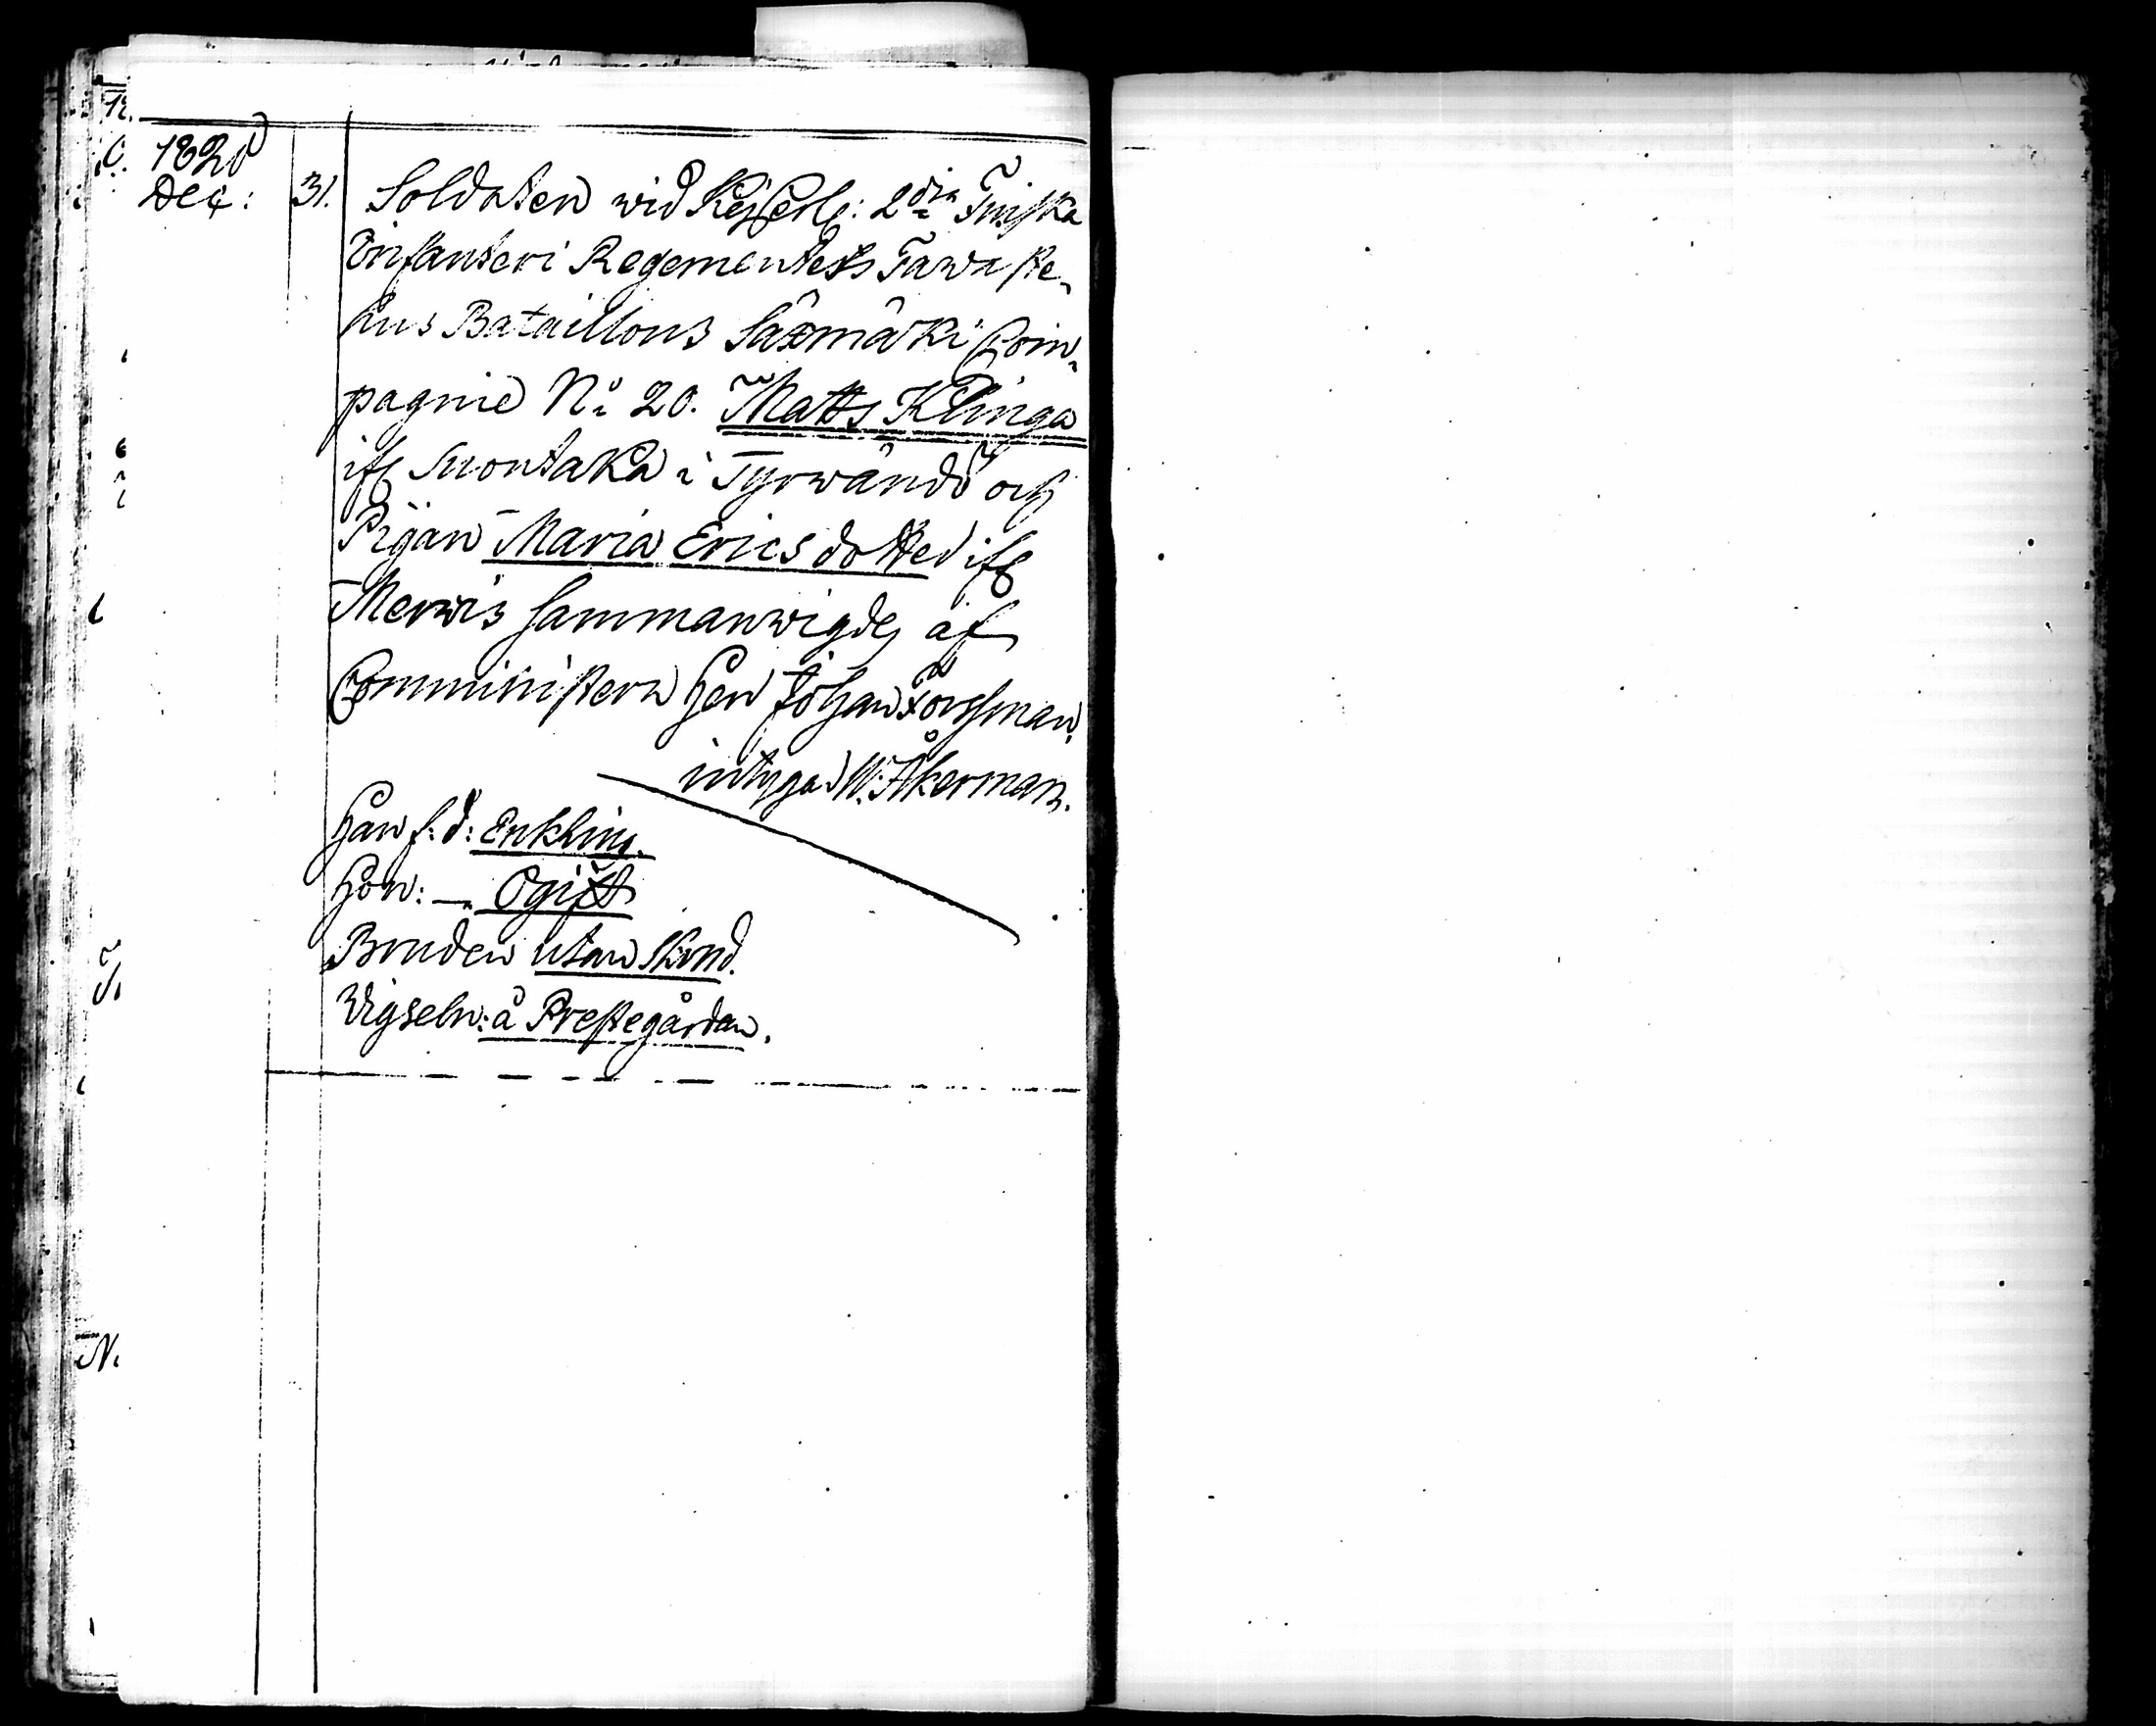 1820
Dec: 31. Soldaten wid Kejserl: 2dra Finska
Infanteri Regementets Tawaste-
hus Bataillons Säxmäki Com-
pagnie No 20. Matts Klinga
ifr Suontaka i Tyrwändö och
Pigan Maria Ericsdotter ifr
Merwis sammanwigdes af
Comministern Herr Johan Forssman,
intygar W. Åkerman.
Han f: d: Enkling.
Hon: — Ogift
Bruden utan skrud.
Wigseln: å Prestegården.